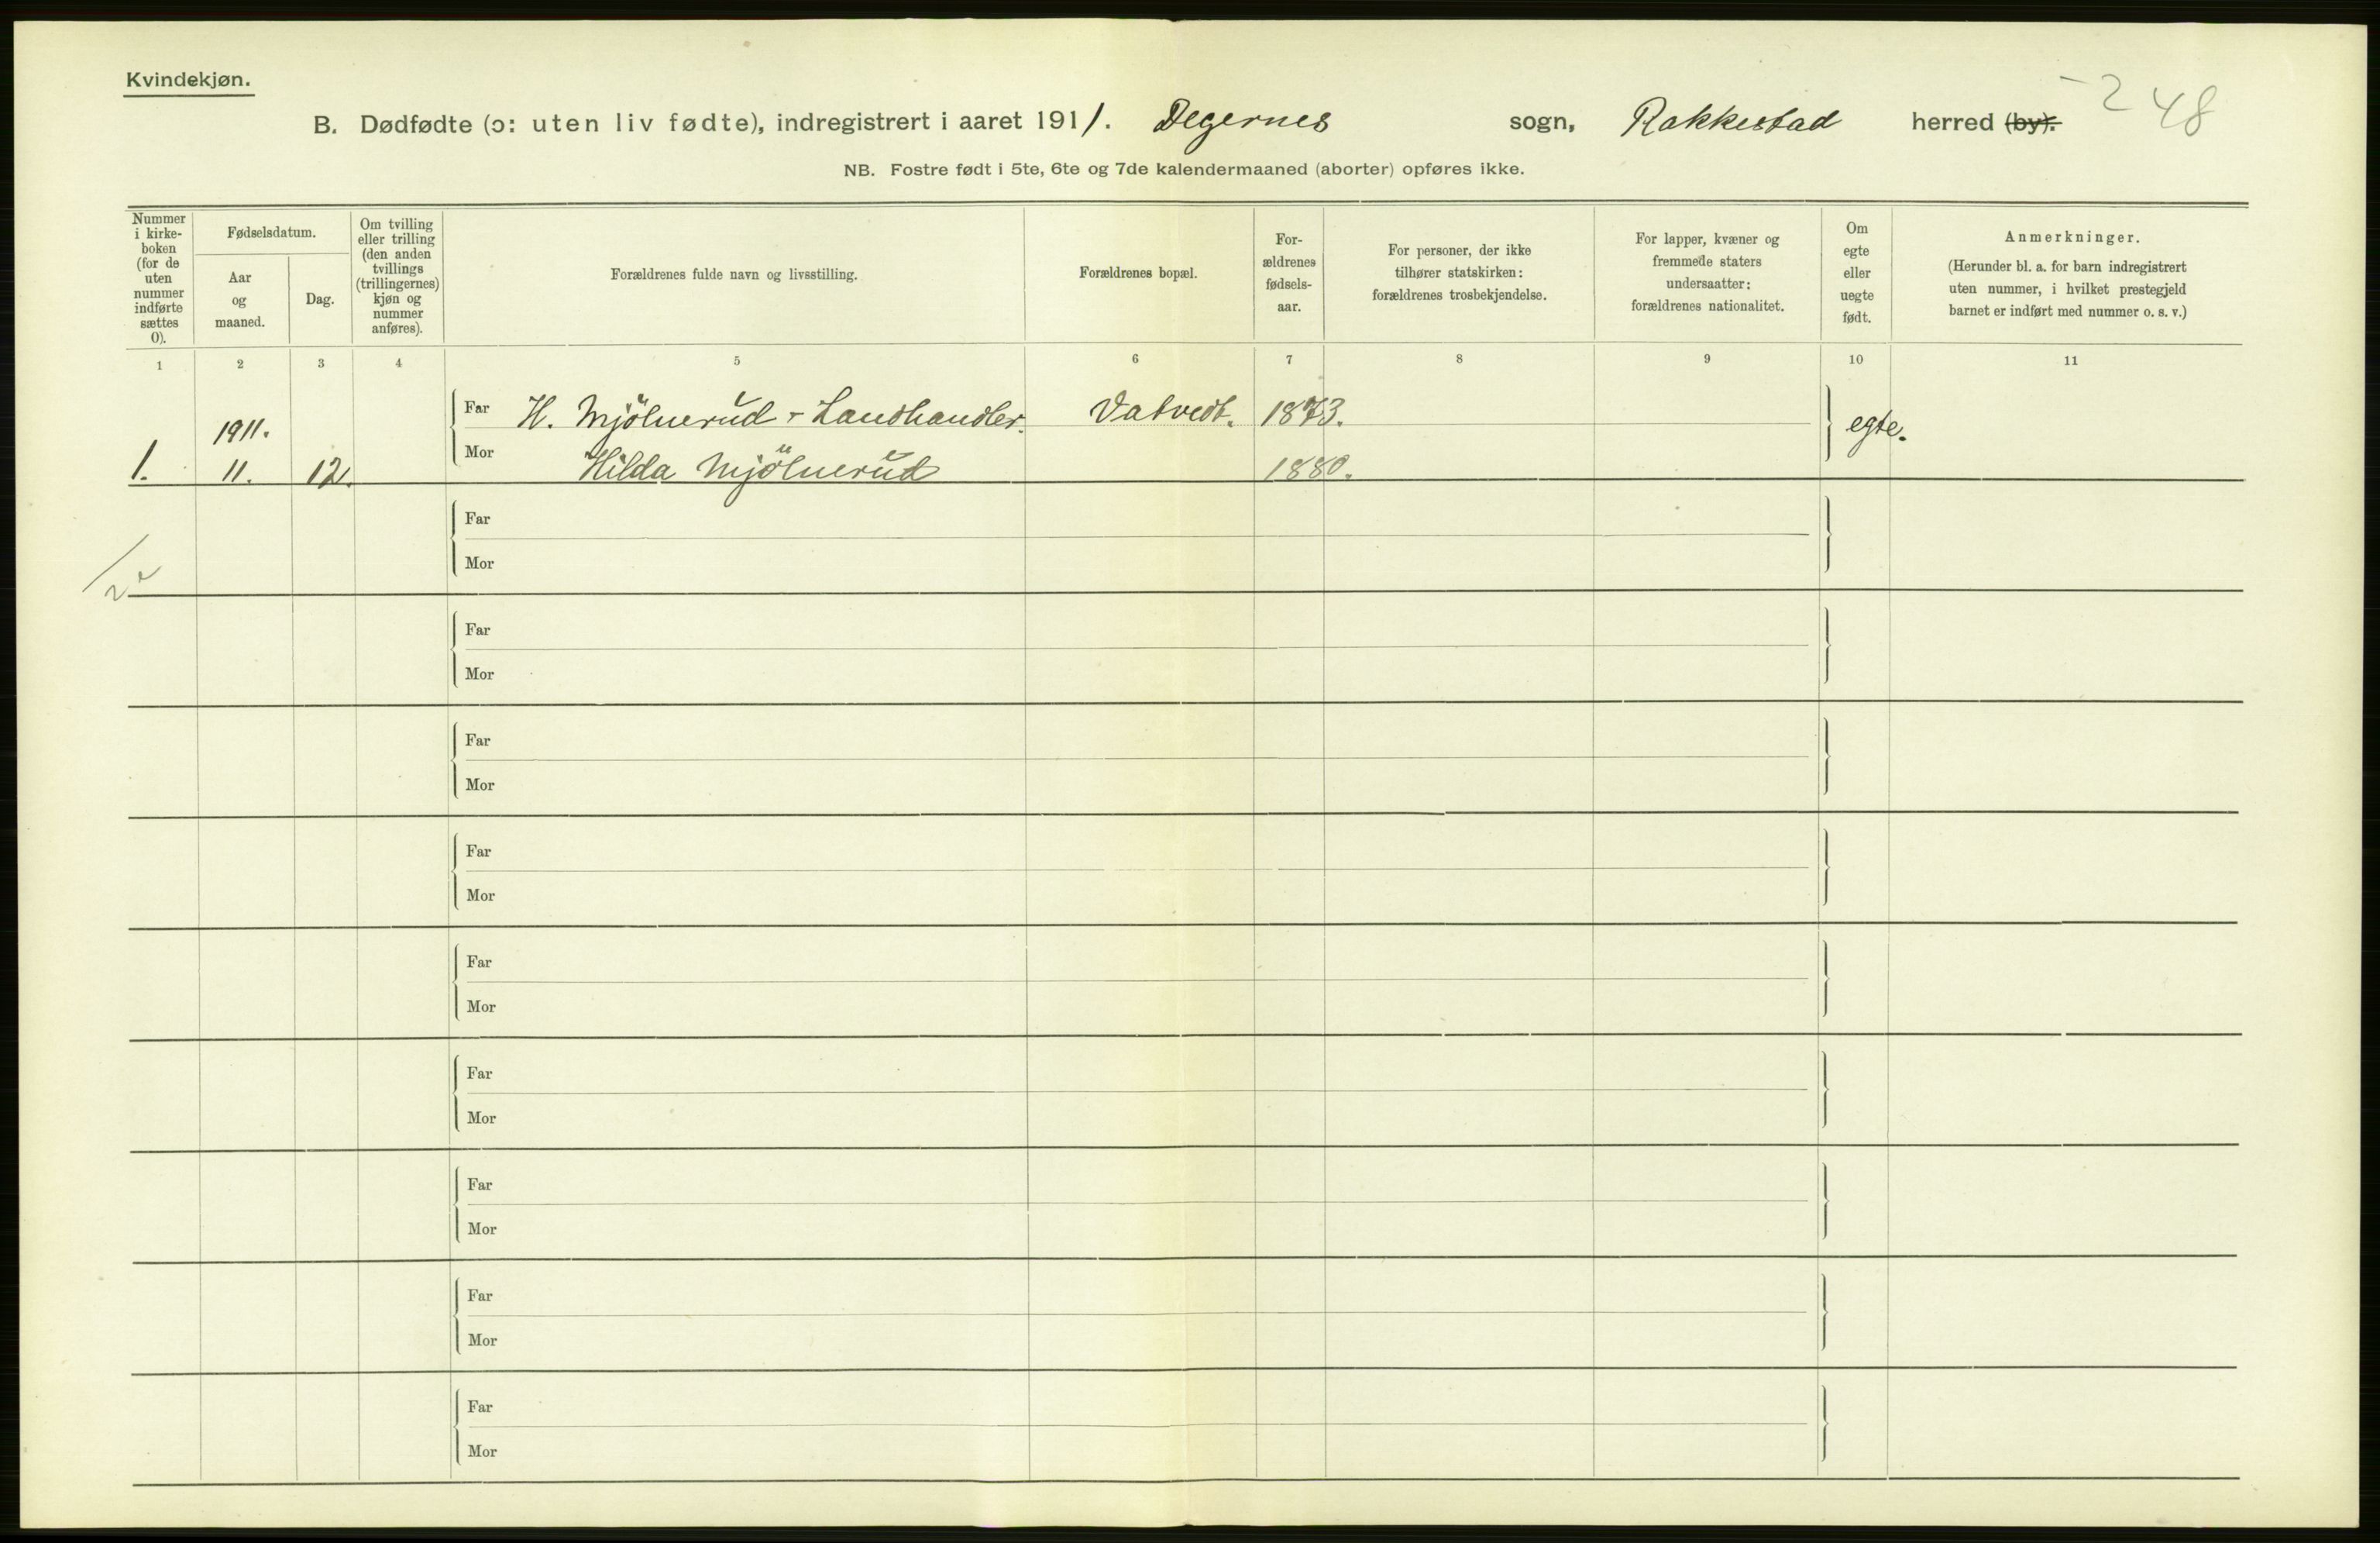 Kvindekjøn.
B. Dødfødte (ɔ: uten liv fødte), indregistrert i aaret 1911. Degernes sogn, Rakkestad herred (by).
248
NB. Fostre født i 5te, 6te og 7de kalendermaaned (aborter) opføres ikke.
Nummer
i kirke-
boken
(for de
uten
nummer
indførte
sættes
0).
Fødselsdatum.
Aar
og
maaned.
Dag.
Om tvilling
eller trilling
(den anden
tvillings
(trillingernes)
kjøn og
nummer
anføres).
Forældrenes fulde navn og livsstilling.
Forældrenes bopæl.
For-
ældrenes
fødsels-
aar.
For personer, der ikke
tilhører statskirken:
forældrenes trosbekjendelse.
For lapper, kvæner og
fremmede staters
undersaatter:
forældrenes nationalitet.
Om
egte
eller
uegte
født.
Anmerkninger.
(Herunder bl. a. for barn indregistrert
uten nummer, i hvilket prestegjeld
barnet er indført med nummer o. s. v.)
1 2 3 4 5 6 7 8 9 10 11
Far H. Mjölnerud - Landhandler. Vatvedt. 1873.
1911. egte.
1. 11. 12. Mor Hilda Mjölnerud 1880.
Far
Mor
Far
Mor
Far
Mor
Far
Mor
Far
Mor
Far
Mor
Far
Mor
Far
Mor
Far
Mor